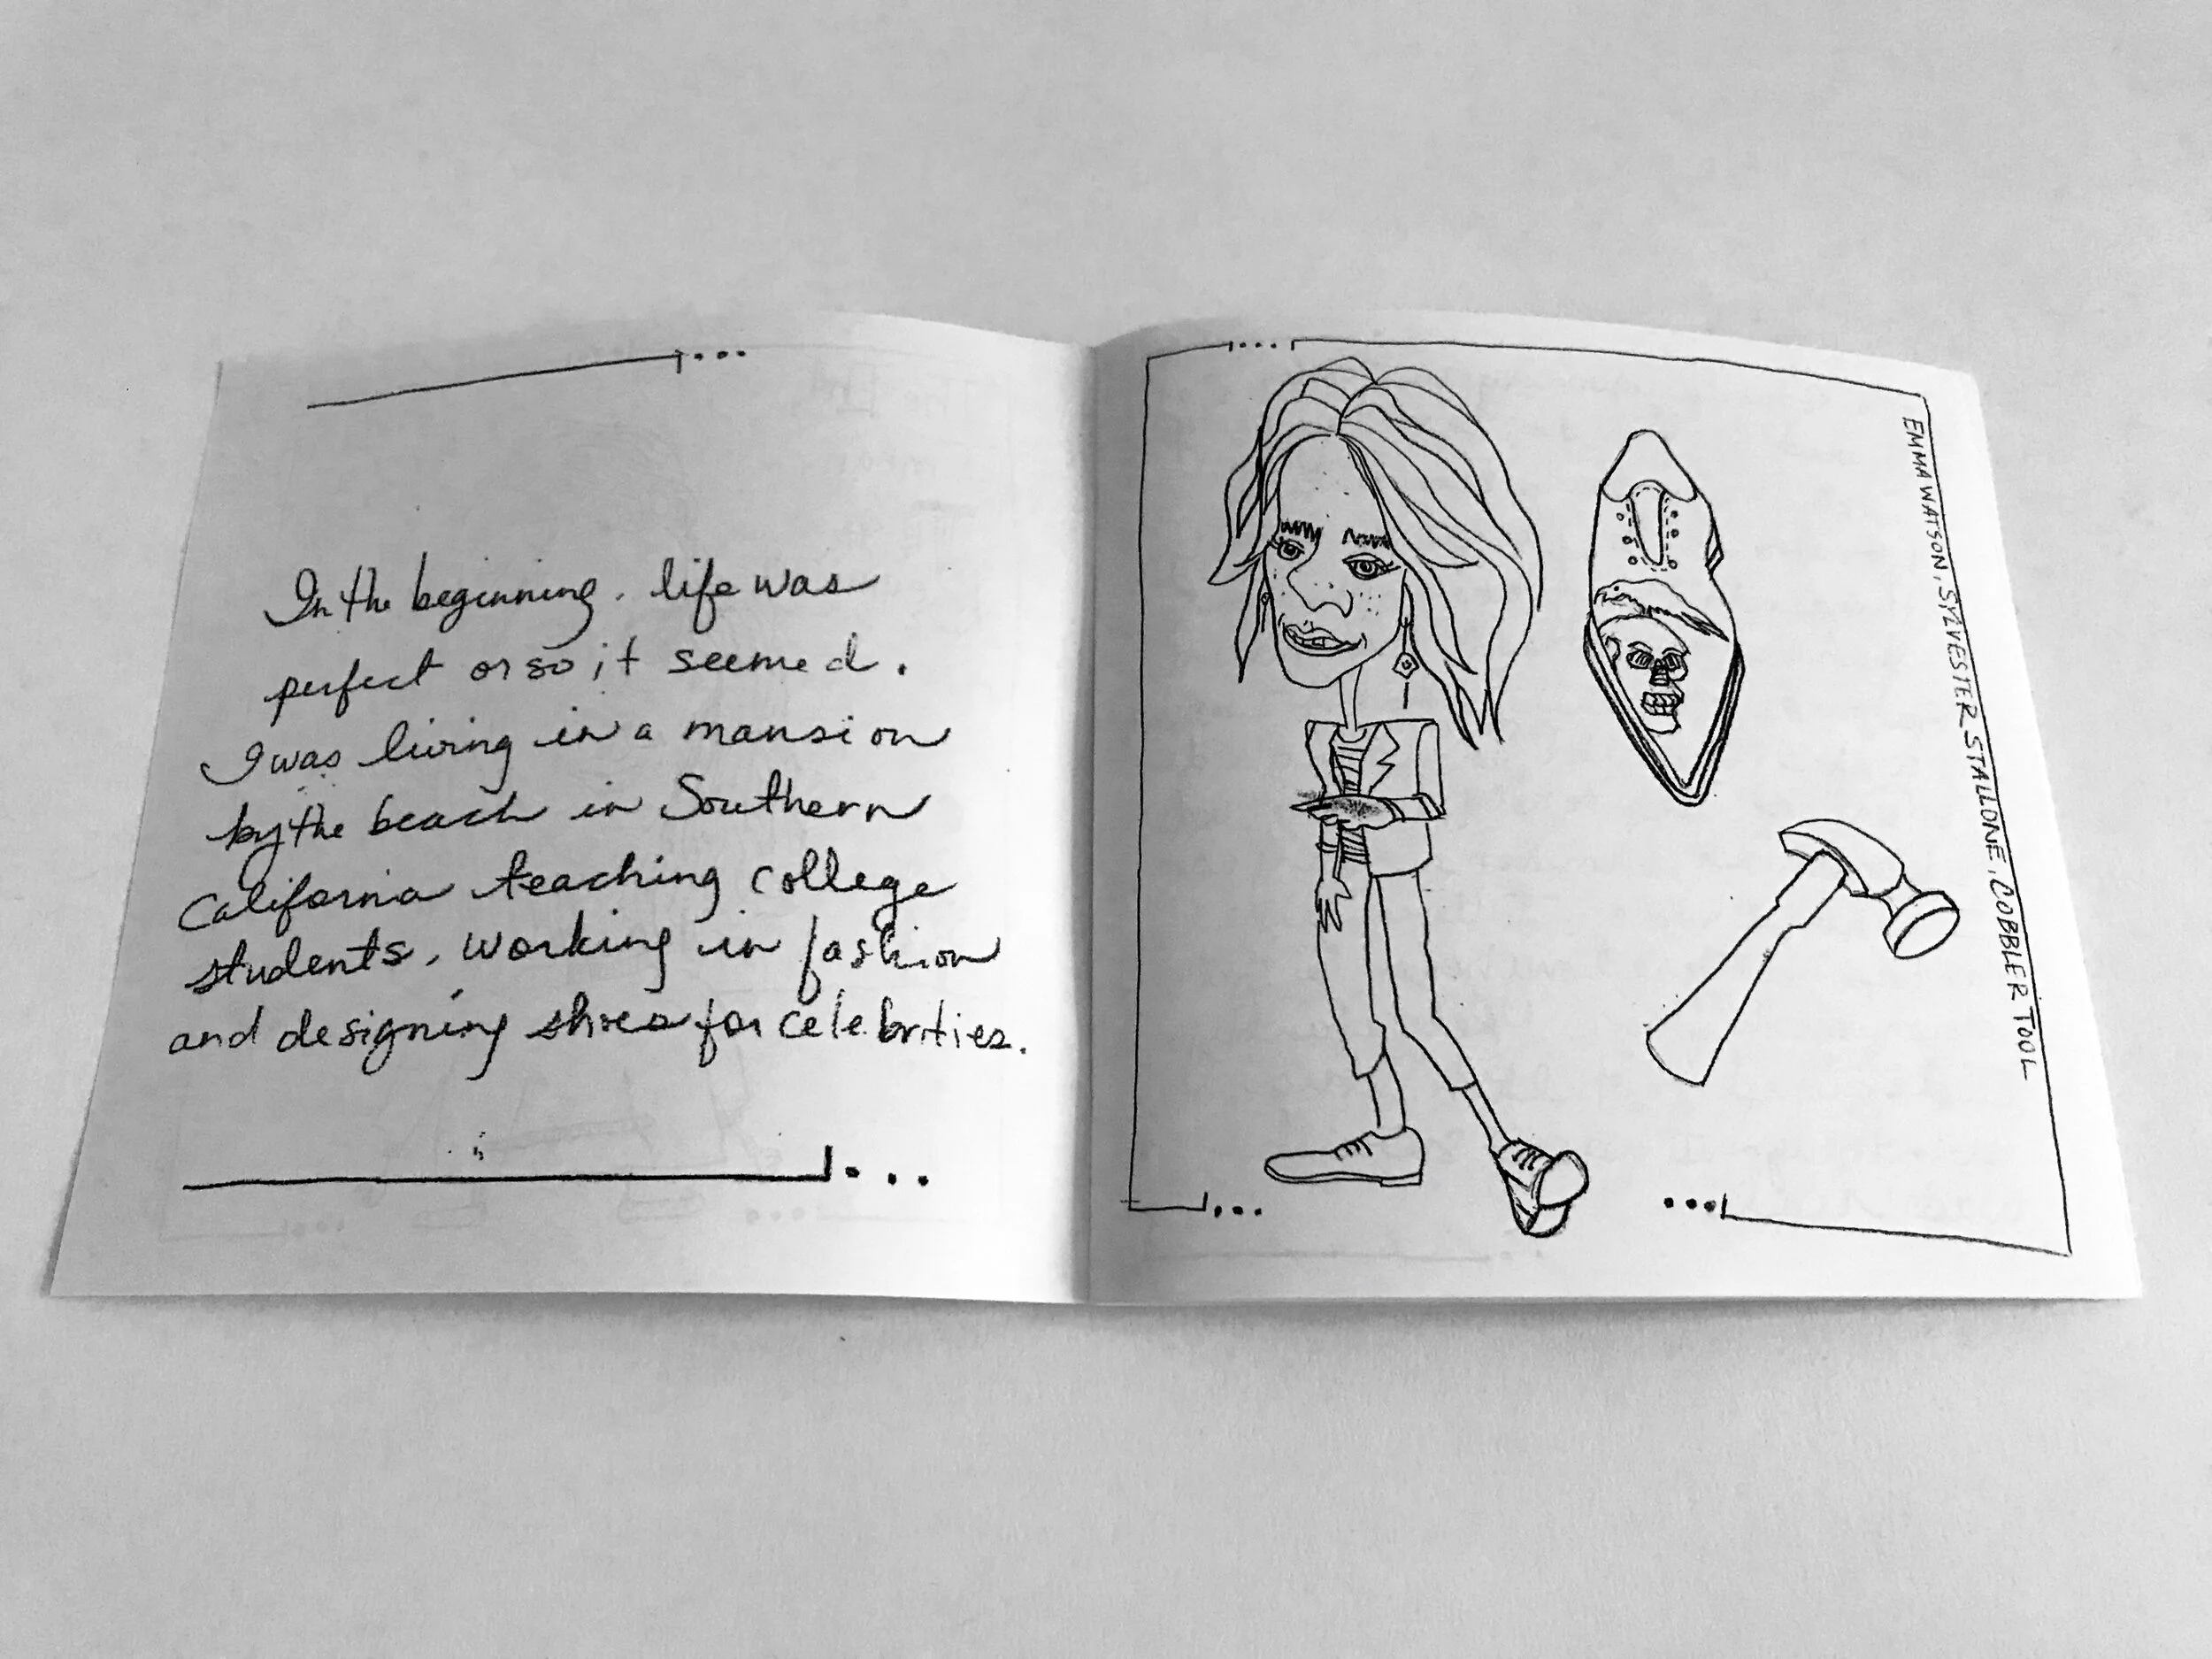 In the beginning, life was
perfect or so it seemed.
I was living in a mansion
by the beach in Southern
California teaching college
students, working in fashion
and designing shoes for celebrities.
EMMA WATSON, SYLVESTER STALLONE, COBBLER TOOL